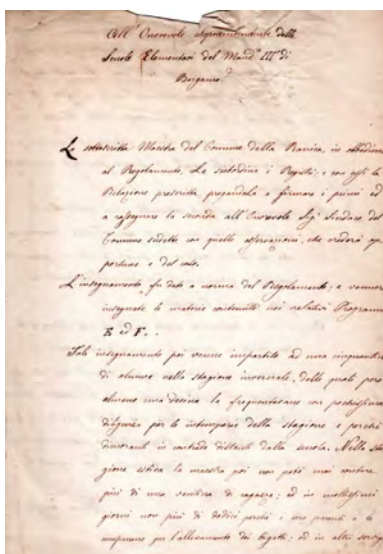 All' Onorevole Sopraintendente delle
Scuole Elementari del Mand.º IIIº di
Bergamo.
La sottoscritta Maestra del Comune della Ranica, in obbedienza
al Regolamento, Le sottordina i Registri; e con essi la
Relazione prescritta, pregandola a firmare i primi ed
a rassegnare la seconda all' Onorevole Sigʳ Sindaco del
Comune suddetto con quelle osservazioni, che crederà op
portune e del caso.
L'insegnamento fu dato a norma del Regolamento; e vennero
insegnate le materie contenute nei relativi Programmi
E ed F.
Tale insegnamento poi venne impartito ad una cinquantina
di alunne nella stagione invernale, delle quali però
almeno una decina la frequentarono con pochissima
diligenza per le intemperie della stagione e perchè
dimoranti in contrade distanti dalla scuola. Nella sta
gione estiva la maestra poi non potè mai contare
più di una ventina di ragazze; ed in moltissimi
giorni non più di dodici perchè i loro parenti o le
per l'allevamento dei bigatti; od in altri